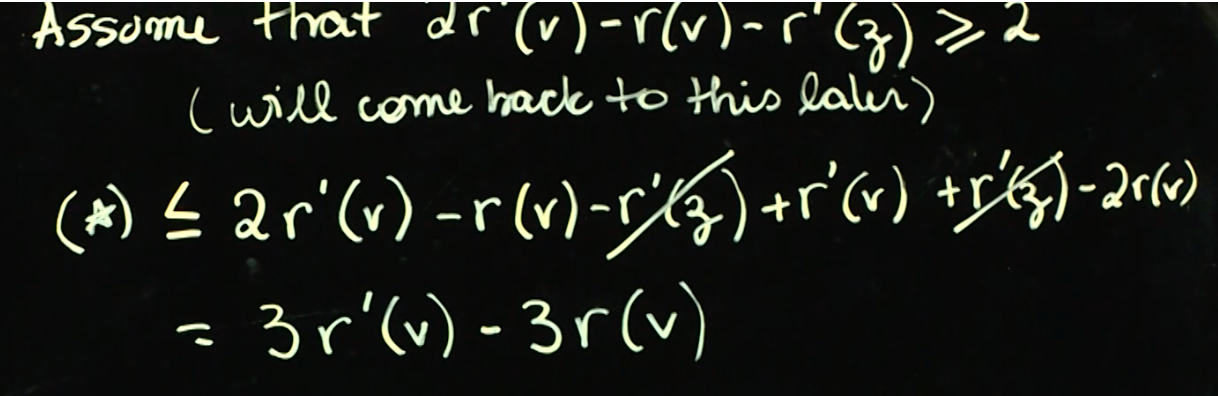 Assume that 2r'(v)-r(v)-r'(z) ⩾ 2
(will come back to this later)
(*) ≤ 2r'(v) -r(v)-r'(z)+r'(v) +r'(z)-2r(v)
= 3r'(v) - 3r(v)